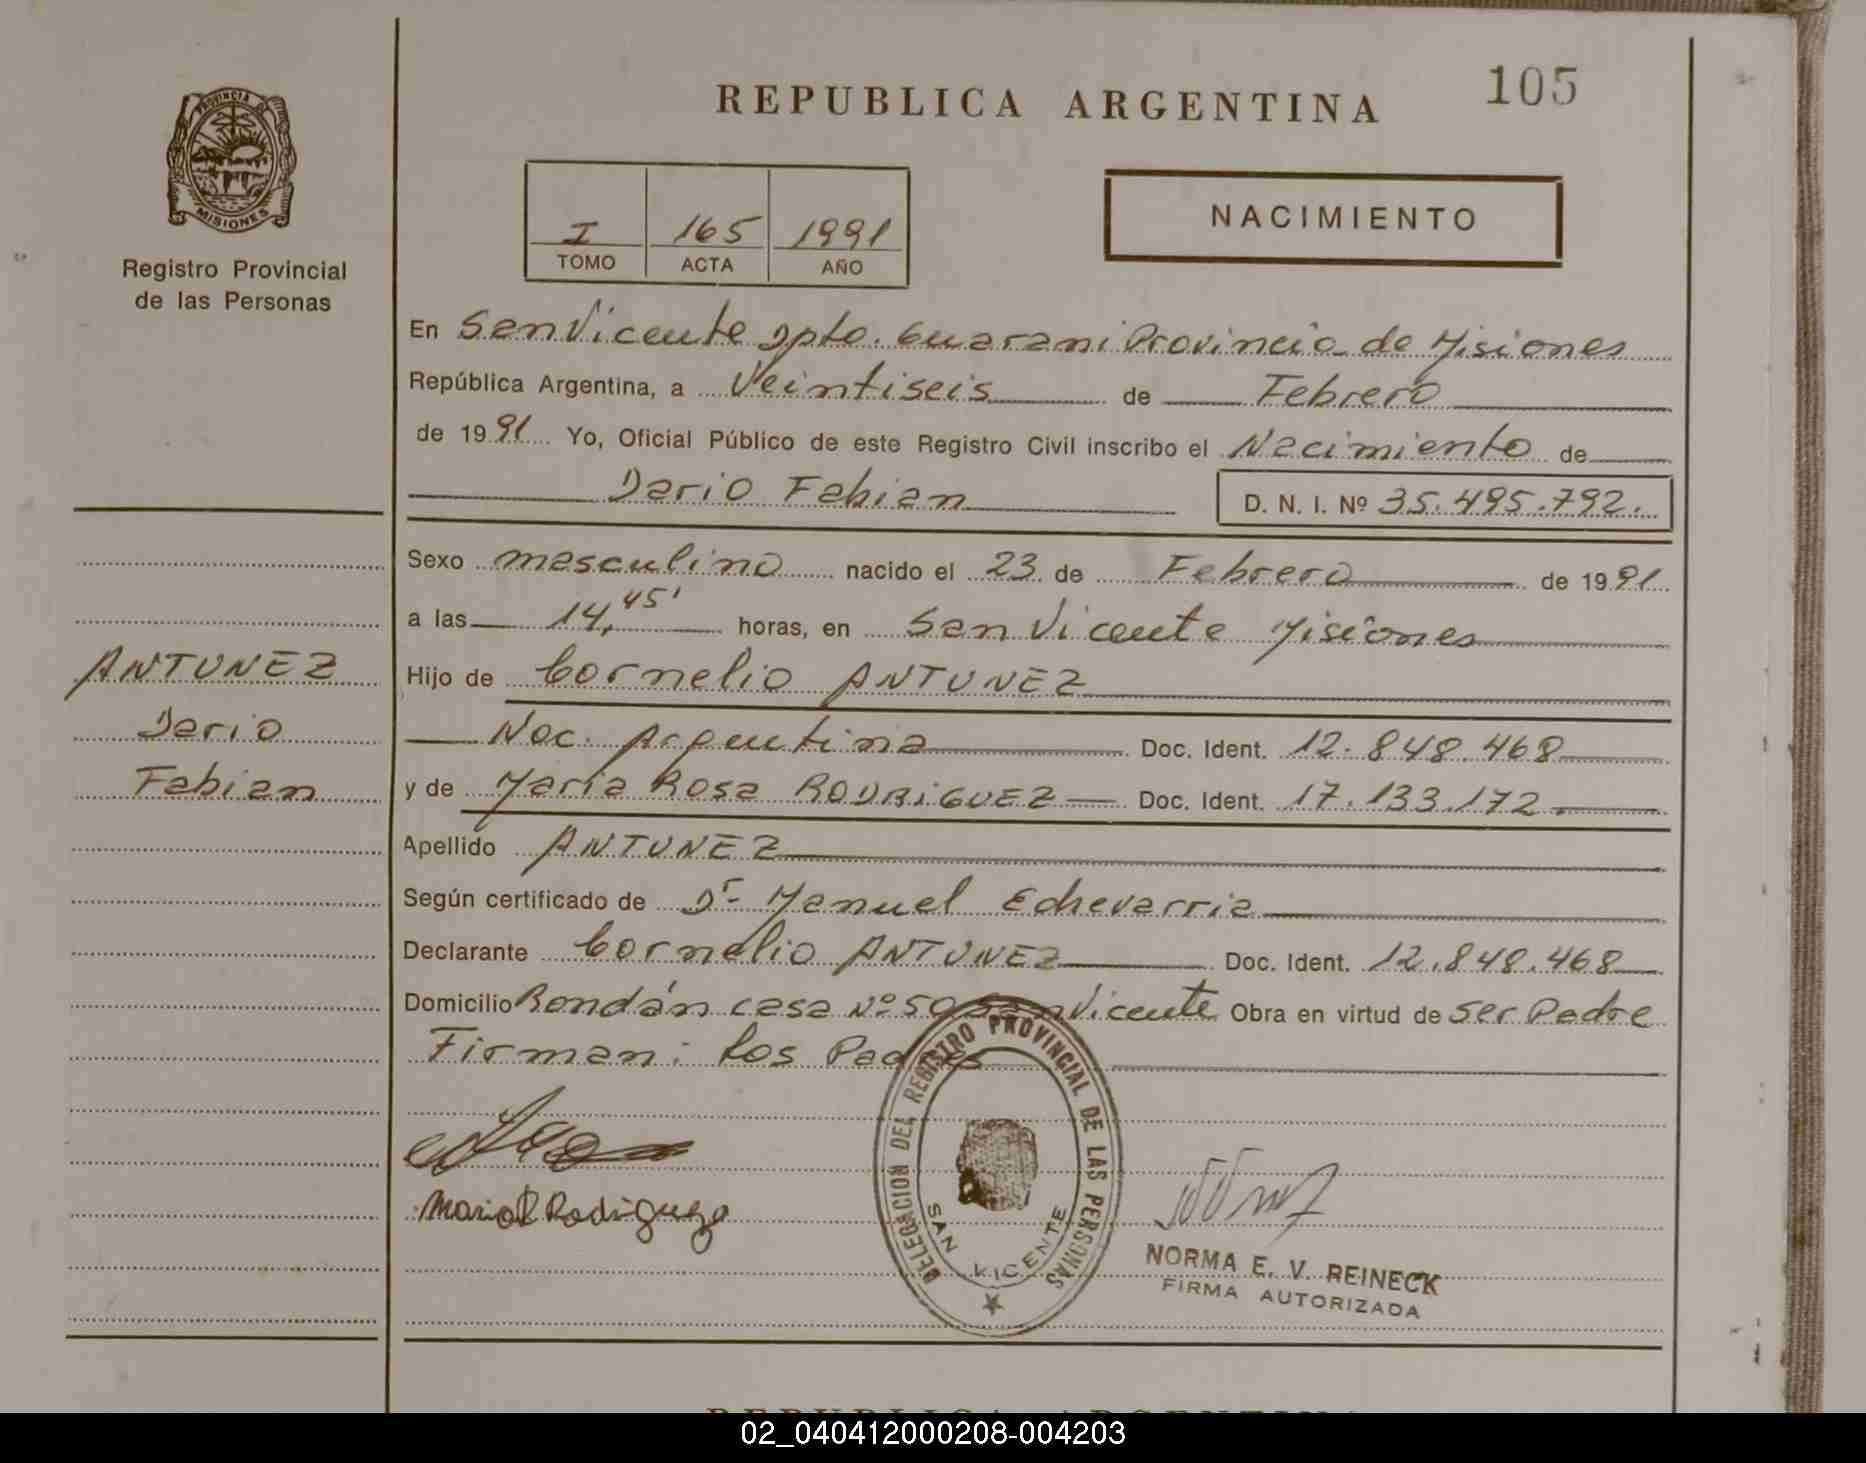 105
REPUBLICA ARGENTINA
PROVINCIA DE
MISIONES
Registro Provincial
de las Personas
I 165 1991
TOMO ACTA AÑO
NACIMIENTO
En San Vicente Dpto. Guarani Provincia de Misiones
República Argentina, a Veintiseis de Febrero
de 1991 Yo, Oficial Público de este Registro Civil inscribo el Nacimiento de
Dario Fabian D. N. I. Nº 35.495.792.
Sexo masculino nacido el 23 de Febrero de 1991
a las 14,45' horas, en San Vicente Misiones
ANTUNEZ
Dario
Fabian
Hijo de Cornelio ANTUNEZ
Nac. Argentina Doc. Ident. 12.848.468
y de Maria Rosa RODRIGUEZ Doc. Ident. 17.133.172.
Apellido ANTUNEZ
Según certificado de Dr. Manuel Echevarria
Declarante Cornelio ANTUNEZ Doc. Ident. 12.848.468
Domicilio Rondán casa Nº 50 San Vicente Obra en virtud de ser Padre
Firman: Los Padres
Maria R Rodriguez
DELEGACION DEL REGISTRO PROVINCIAL DE LAS PERSONAS
SAN VICENTE
NORMA E. V. REINECK
FIRMA AUTORIZADA
REPUBLICA ARGENTINA
02_040412000208-004203